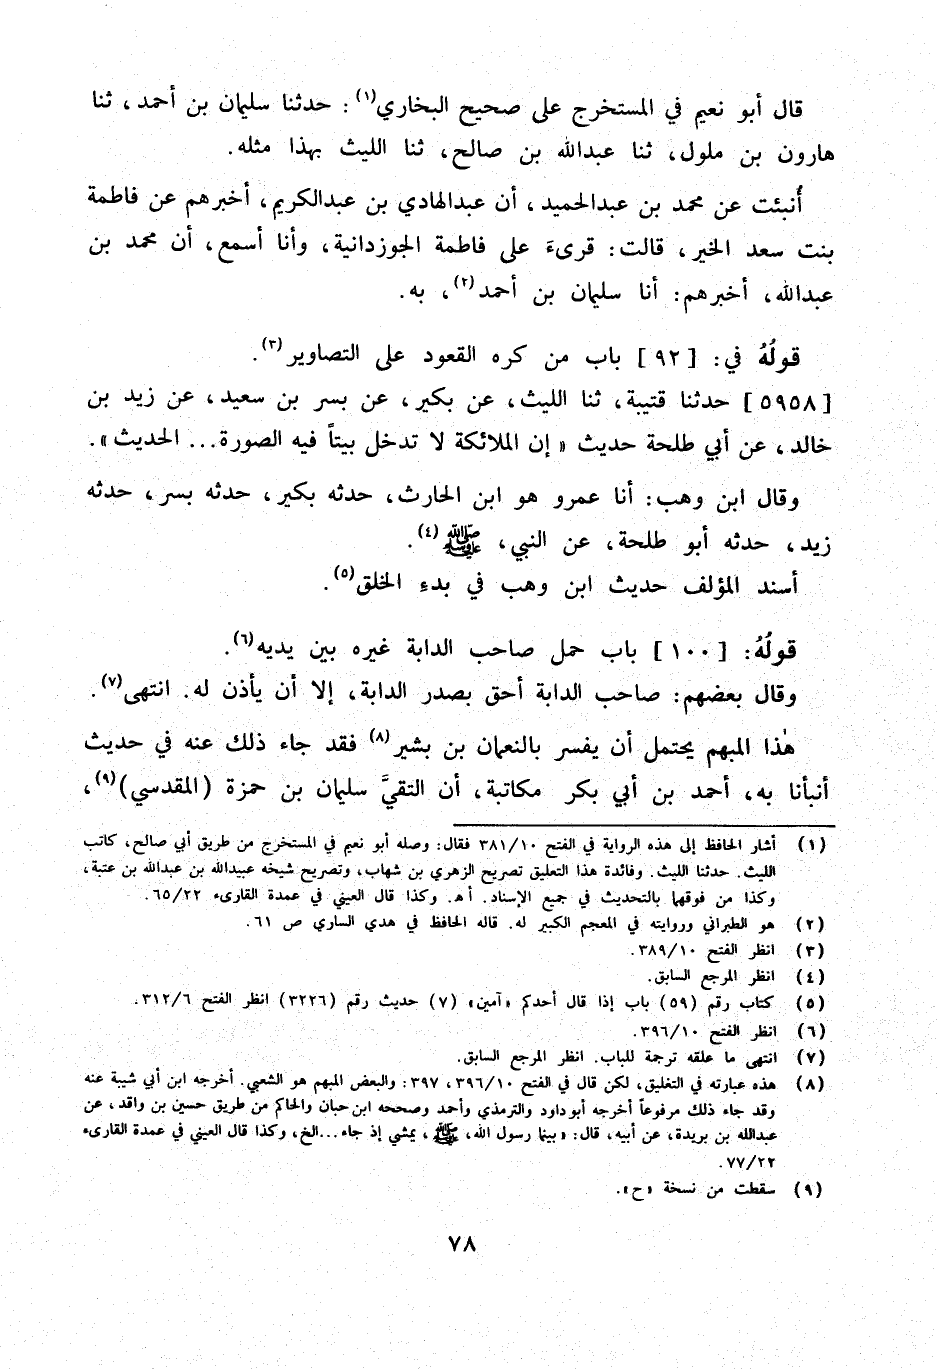 قال أبو نعيم في المستخرج على صحيح البخاري(١): حدثنا سليمان بن أحمد، ثنا
هارون بن ملول، ثنا عبدالله بن صالح، ثنا الليث بهذا مثله.
أُنبئت عن محمد بن عبدالحميد، أن عبدالهادي بن عبدالكريم، أخبرهم عن فاطمة
بنت سعد الخير، قالت: قرىءَ على فاطمة الجوزدانية، وأنا أسمع، أن محمد بن
عبدالله، أخبرهم: أنا سليمان بن أحمد(٢)، به.
قولُهُ في: [٩٢] باب من كره القعود على التصاوير(٣).
[٥٩٥٨] حدثنا قتيبة، ثنا الليث، عن بكير، عن بسر بن سعيد، عن زيد بن
خالد، عن أبي طلحة حديث «إن الملائكة لا تدخل بيتاً فيه الصورة... الحديث».
وقال ابن وهب: أنا عمرو هو ابن الحارث، حدثه بكير، حدثه بسر، حدثه
زيد، حدثه أبو طلحة، عن النبي، ﷺ(٤).
أسند المؤلف حديث ابن وهب في بدءِ الخلق(٥).
قولُهُ: [١٠٠] باب حمل صاحب الدابة غيره بين يديه(٦).
وقال بعضهم: صاحب الدابة أحق بصدر الدابة، إلا أن يأذن له. انتهى(٧).
هٰذا المبهم يحتمل أن يفسر بالنعمان بن بشير(٨) فقد جاء ذلك عنه في حديث
أنبأنا به، أحمد بن أبي بكر مكاتبة، أن التقيَّ سليمان بن حمزة (المقدسي)(٩)،
(١) أشار الحافظ إلى هذه الرواية في الفتح ٣٨١/١٠ فقال: وصله أبو نعيم في المستخرج من طريق أبي صالح، كاتب
الليث. حدثنا الليث. وفائدة هذا التعليق تصريح الزهري بن شهاب، وتصريح شيخه عبيدالله بن عبدالله بن عتبة،
وكذا من فوقهما بالتحديث في جميع الإسناد. أ هـ. وكذا قال العيني في عمدة القارىء ٦٥/٢٢.
(٢) هو الطبراني وروايته في المعجم الكبير له. قاله الحافظ في هدي الساري ص ٦١.
(٣) انظر الفتح ٣٨٩/١٠.
(٤) انظر المرجع السابق.
(٥) كتاب رقم (٥٩) باب إذا قال أحدكم «آمين» (٧) حديث رقم (٣٢٢٦) انظر الفتح ٣١٢/٦.
(٦) انظر الفتح ٣٩٦/١٠.
(٧) انتهى ما علقه ترجمة للباب. انظر المرجع السابق.
(٨) هذه عبارته في التغليق، لكن قال في الفتح ٣٩٦/١٠، ٣٩٧: والبعض المبهم هو الشعبي. أخرجه ابن أبي شيبة عنه
وقد جاء ذلك مرفوعاً أخرجه أبو داود والترمذي وأحمد وصححه ابن حبان والحاكم من طريق حسين بن واقد، عن
عبدالله بن بريدة، عن أبيه، قال: «بينما رسول الله، ﷺ، يمشي إذ جاء... الخ، وكذا قال العيني في عمدة القارىء
٧٧/٢٢.
(٩) سقطت من نسخة «ح».
٧٨